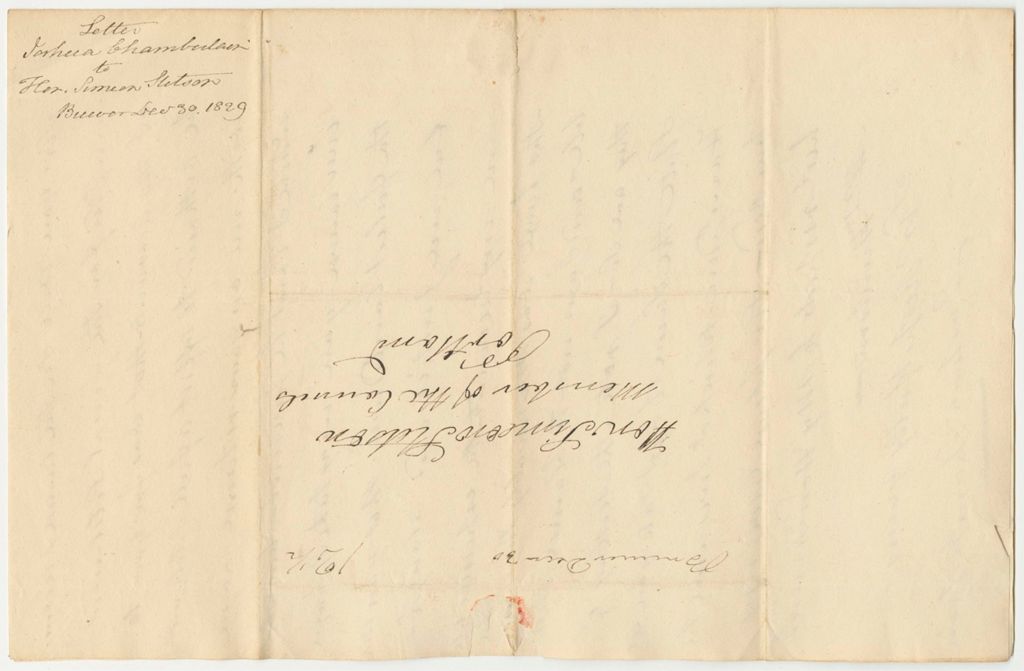 Letter
Joshua Chamberlain
to
Hon. Simeon Stetson
Brewer Dec 30. 1829
Brewer Decr 30
12½
Hon. Simeon Stetson
Member of the Council
Portland